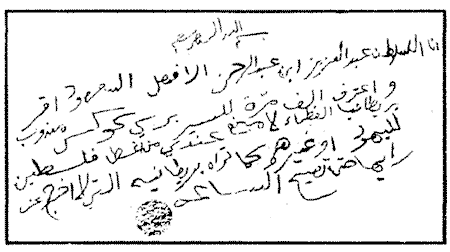 بسم الله الرحمن الرحيم
انا السلطان عبد العزيز ابن عبد الرحمن الافصل السعود اقر
واعترف الف مرة للسير برسي كوكس مندوب
بريطانيا العظماء لا مانع عندي من اعطا فلسطين
لليهود او غيرهم كما تراه بريطانيه التي لا اخرج عن
رايها حتى تصيح الساعه